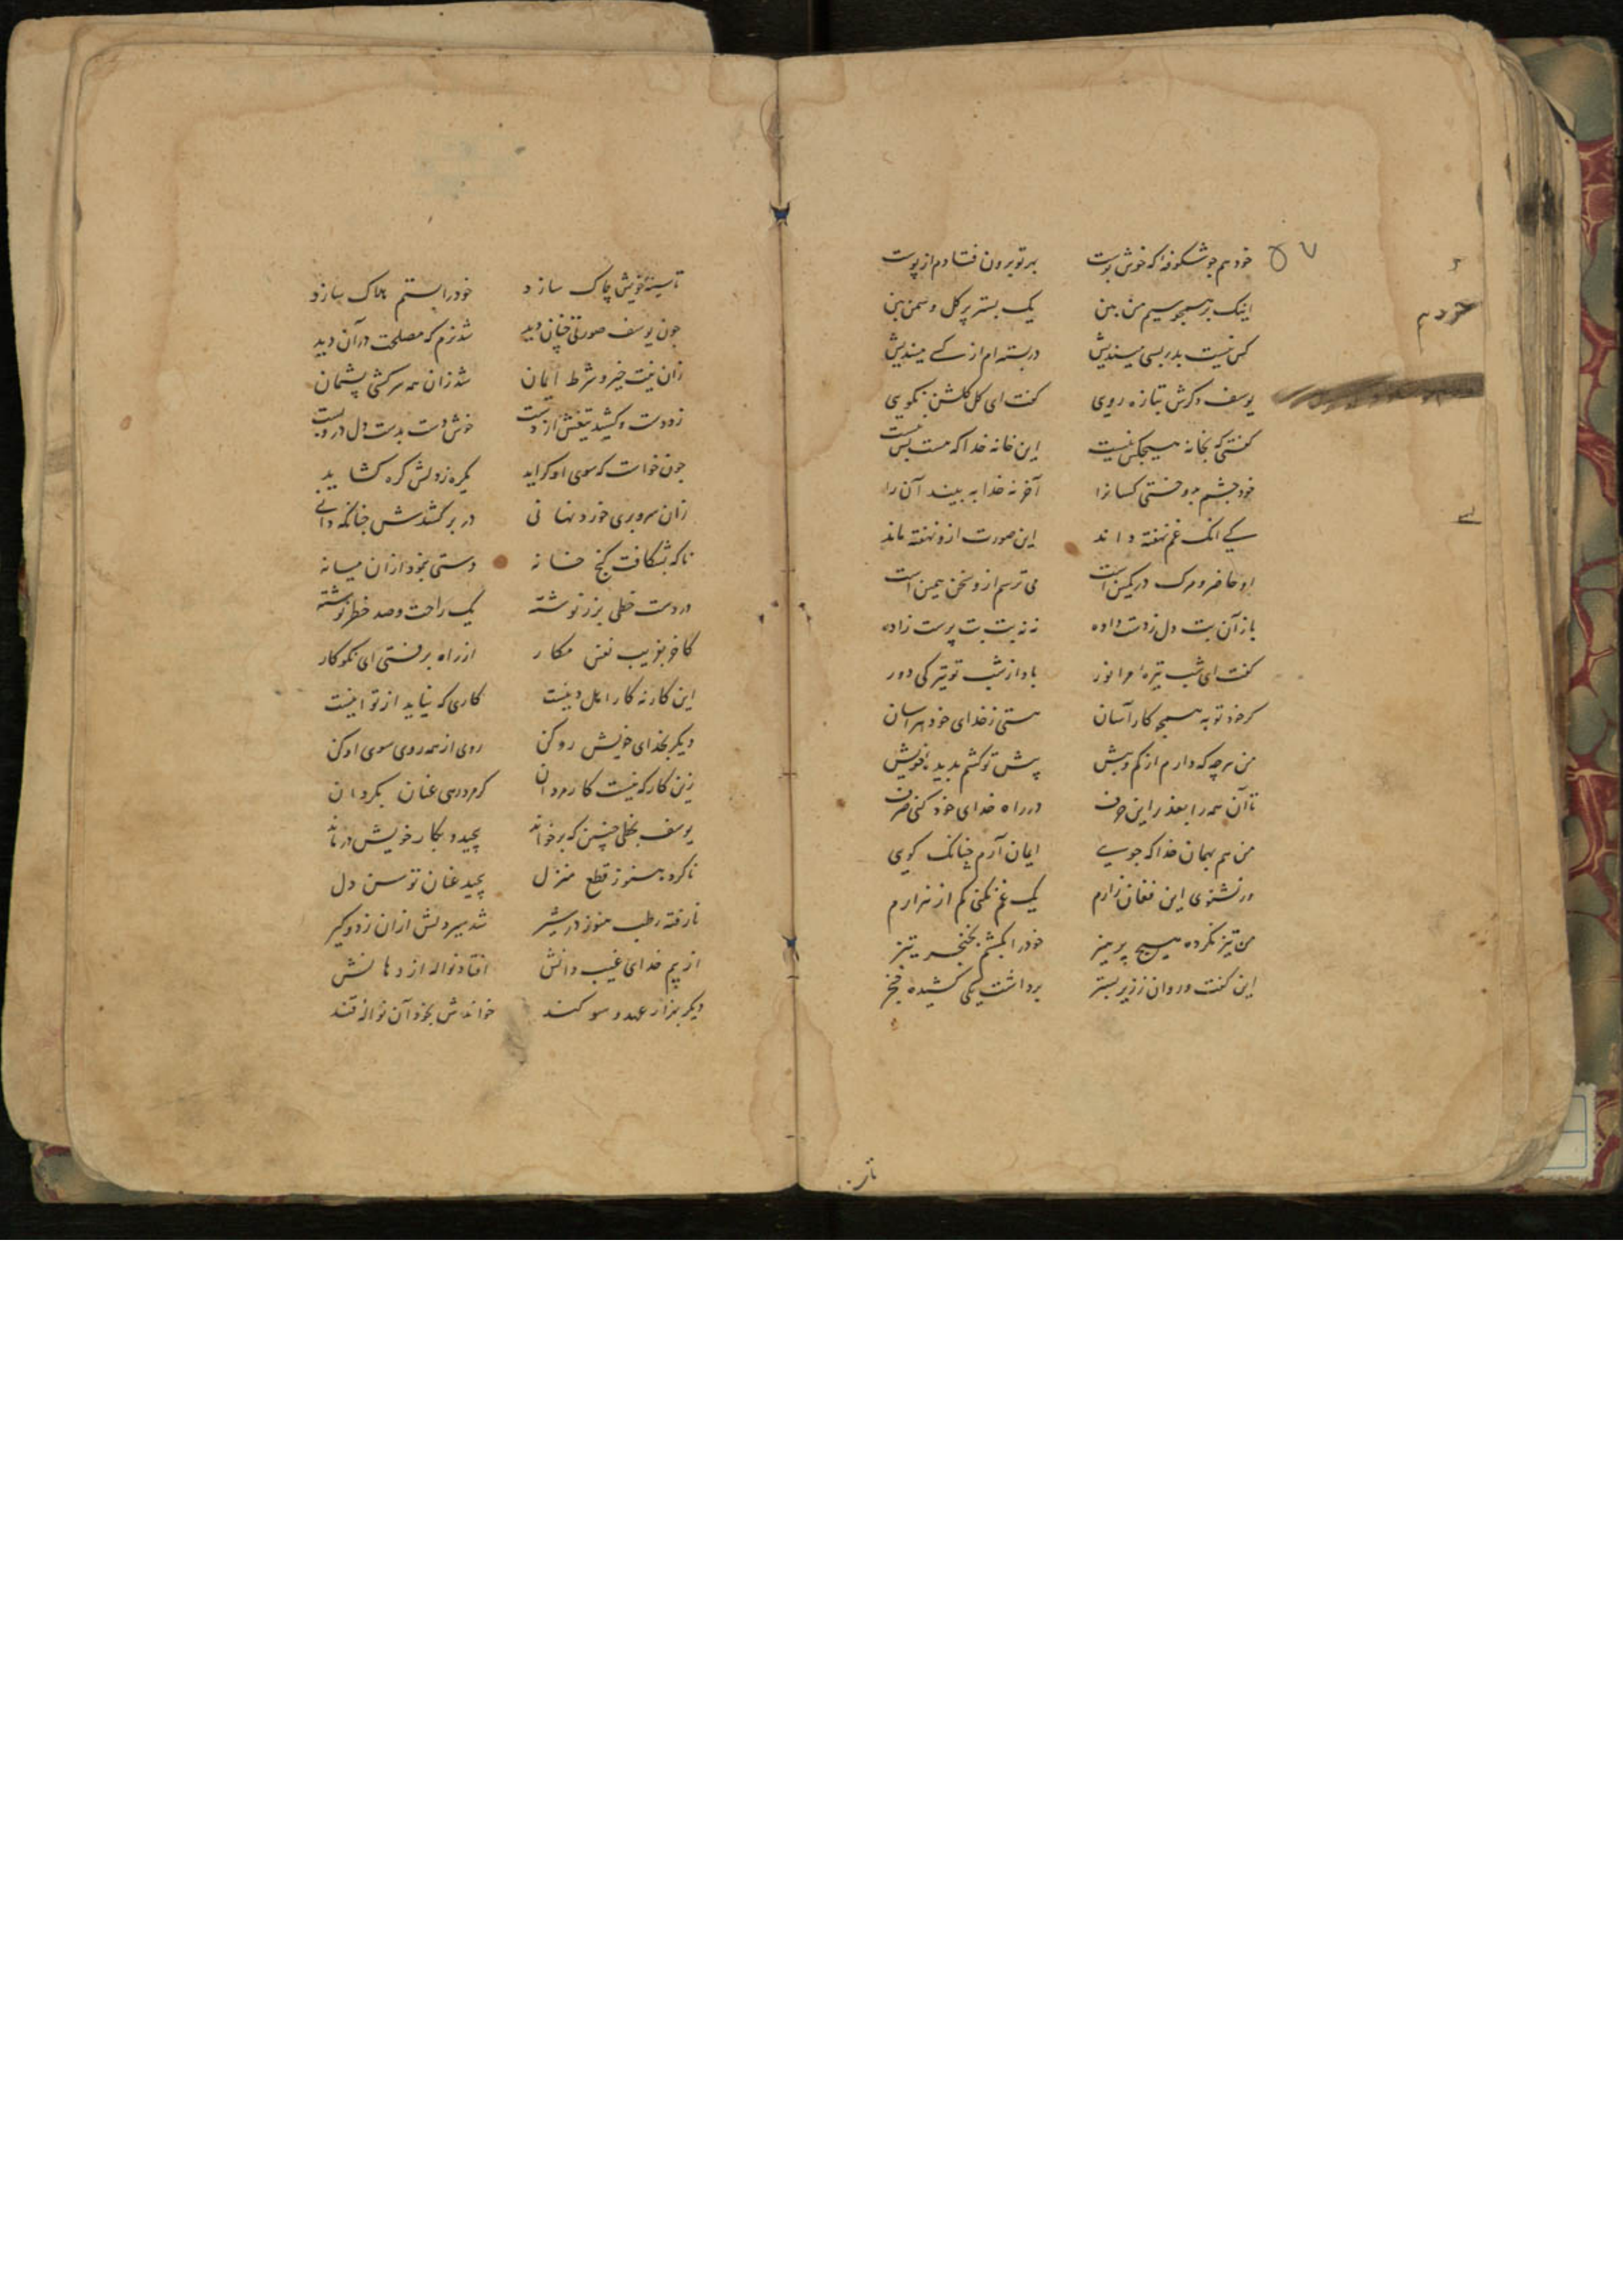 خود هم جو شکوفه که خوش بوست بهر تو برون فتادم از پوست
اینک بر همجو سیم من بین یک بستر پر کل و سمن بین
کس نیست بدر بسی میندیش در بسته ام از کسے میندیش
یوسف دکرش بتازه رویی کفت ای کل کلشن نکویی
کفتی که بخانه هیجکس نیست این خانه خدا که هست بس نیست
خود جشم بدوختی کسانرا آخر نه خدا به بیند آن را
کے انک غم نهفته داند این صورت ازو نهفته ماند
او حاضر و مرک در کمین است می ترسم ازو سخن همین است
باز آن بت دل زدست داده بت پرست زاده
کفت ای شب تیره مرا نور باد از شب تو تیرکی دور
کر خود تو به هیج کار آسان هستی زخدای خود هراسان
من هرجه که دارم از کم و بیش پیش تو کشم بدیده خویش
تا آن همه را بعذر این حرف در راه خدای خود کنی صرف
من هم بهمان خدا که جویے ایمان آرم جنانک کویی
ور نشنوی این فغان زارم یک غم نکنی کم از هزارم
من نیز نکرده هیج پرهیز خود را بکشم بخنجر تیز
این کفت و روان ز زیر بستر برداشت یکی کشیده خنجر
تا سینه خویش جاک سازد خود را بستم هلاک سازد
جون یوسف صورتی جنان دید شد نرم که مصلحت در آن دید
زان نیت خیر و شرط ایمان شد زان همه سرکشی پشیمان
زد دست و کشید تیغش از دست خوش دست بدست دل درو بست
جون خواست که سوی او کراید یکره ز دلش کره کشاید
زان سرو بری خورد نهانی در بر کشدش جنانکه دانے
ناکه بشکافت کنج خانه دستی بنمود ازان میانه
در دست خطی بزر نوشته یک راحت و صد خطر نوشته
کاخر بفریب نفس مکار از راه برفتی ای نکوکار
این کار نه کار اهل دینست کاری که نیاید از تو اینست
دیکر بخدای خویش رو کن روی از همه روی سوی او کن
زین کار که نیست کار مردان کر مردی عنان بکردان
یوسف بخطی جنین که برخواند پیجید و بکار خویش درماند
ناکرده هنوز قطع منزل پیجید عنان توسن دل
نارفته رطب هنوز در شیر شد سیر دلش ازان زد و کیر
از بیم خدای غیب دانش افتاد نواله از دهانش
دیکر بهزار عهد و سوکند خواندش بخود آن نواله قند